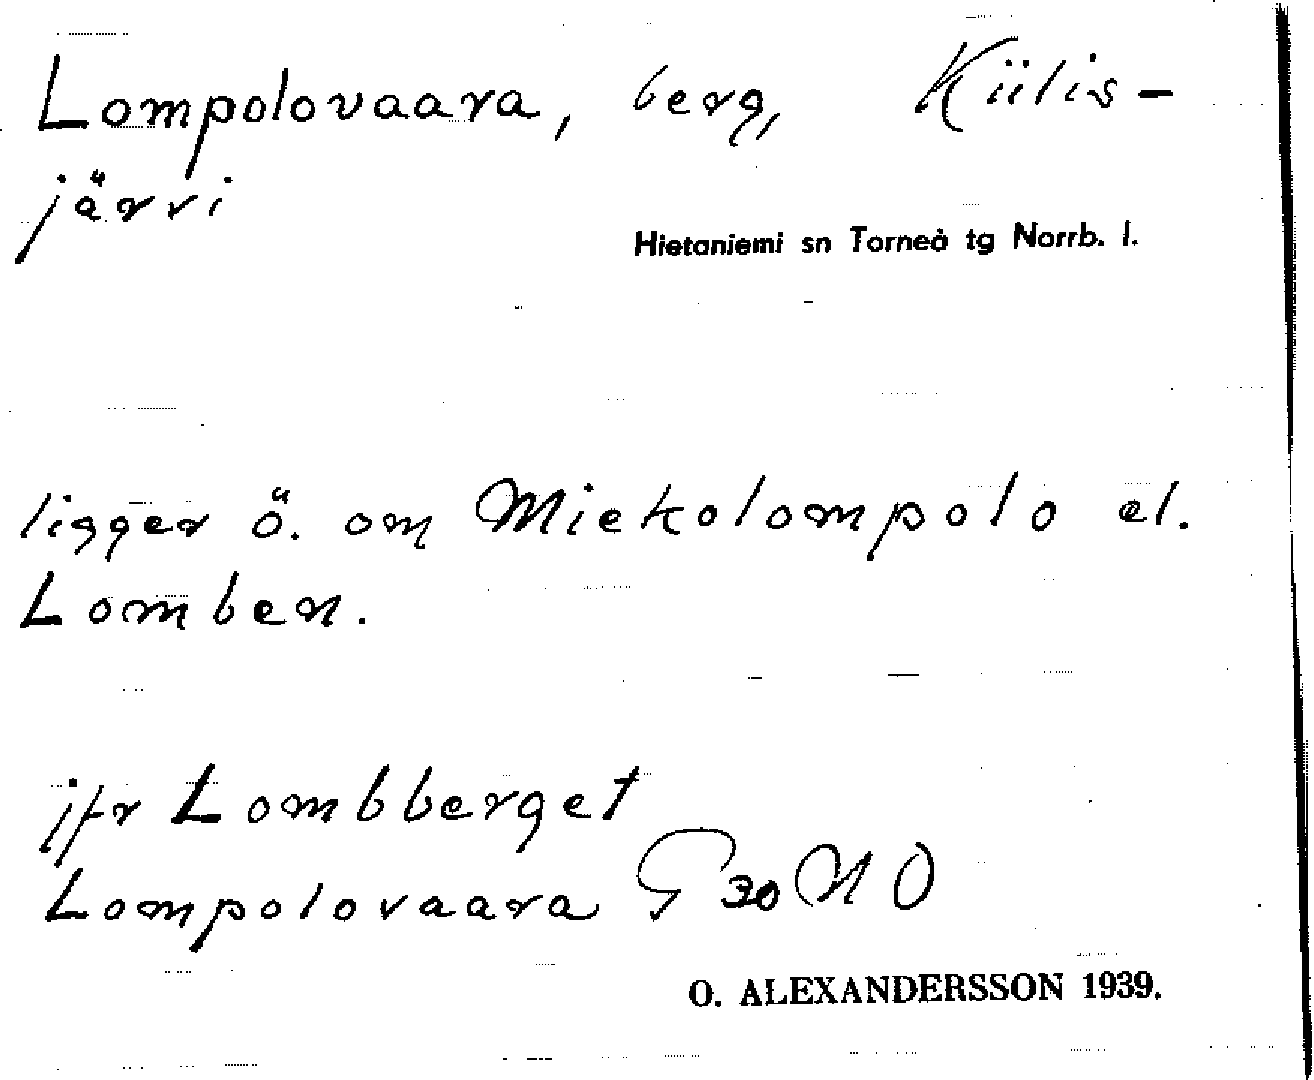 Lompolovaara, berg, Kiilis-
järvi
Hietaniemi sn Torneå tg Norrb. l.
ligger ö. om Miekolompolo el.
Lomben.
jfr Lombberget
Lompolovaara G 30 N O
O. ALEXANDERSSON 1939.